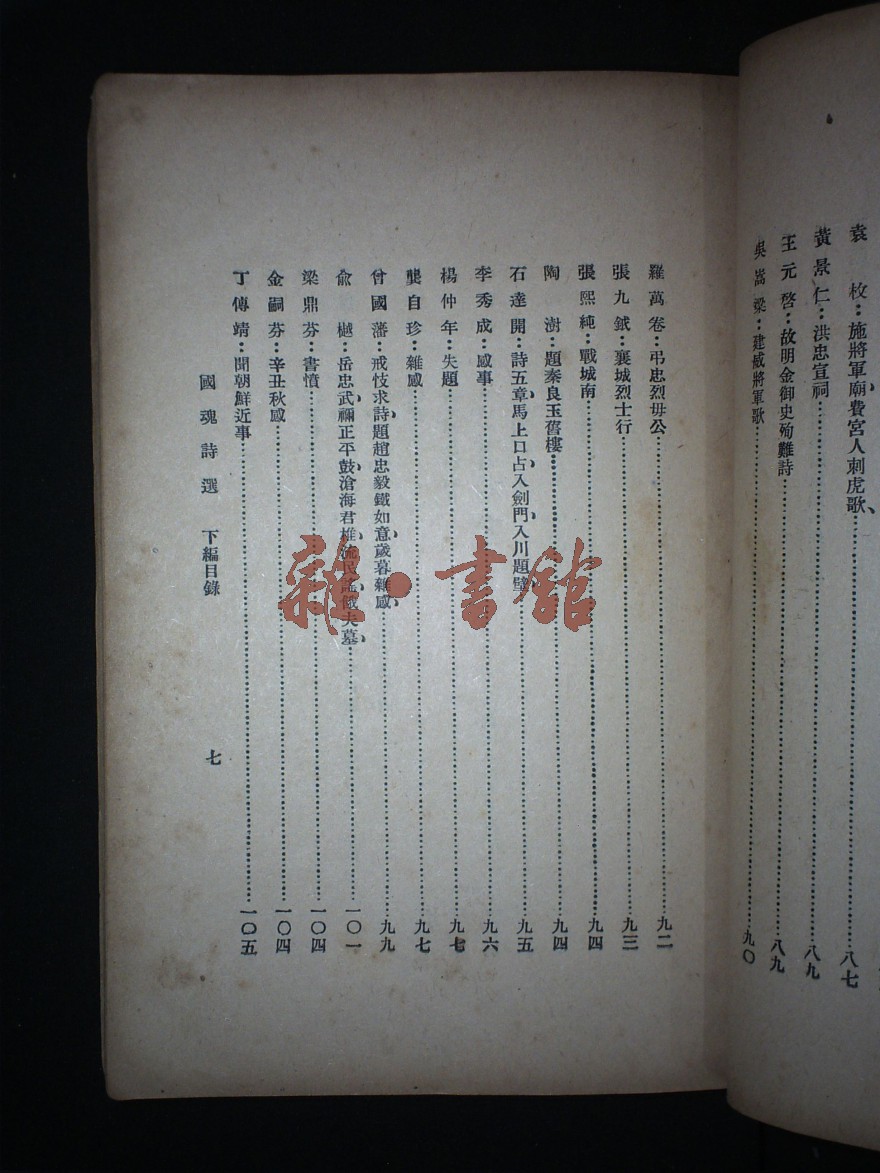 袁枚：施將軍廟、費宮人刺虎歌、……八七
黃景仁：洪忠宣祠……八九
王元啓：故明金御史殉難詩……八九
吳嵩梁：建威將軍歌……九〇
羅萬卷：弔忠烈毋公……九二
張九鉞：襄城烈士行……九三
張熙純：戰城南……九四
陶澍：題秦良玉舊樓……九四
石達開：詩五章馬上口占、入劍門、入川題壁……九五
李秀成：感事……九六
楊仲年：失題……九七
龔自珍：雜感……九七
曾國藩：戒忮求詩、題趙忠毅鐵如意、歲暮雜感、……九九
俞樾：岳忠武、禰正平鼓、滄海君椎、流民謠、餓夫墓、……一〇一
梁鼎芬：書憤……一〇四
金嗣芬：辛丑秋感……一〇四
丁傳靖：聞朝鮮近事……一〇五
國魂詩選 下編目錄 七
雜·書館